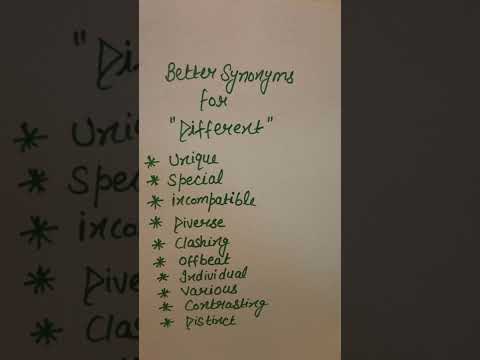 Better Synonyms
for
"Different"
* Unique
* Special
* incompatible
* Diverse
* Clashing
* Offbeat
* Individual
* Various
* Contrasting
* Distinct